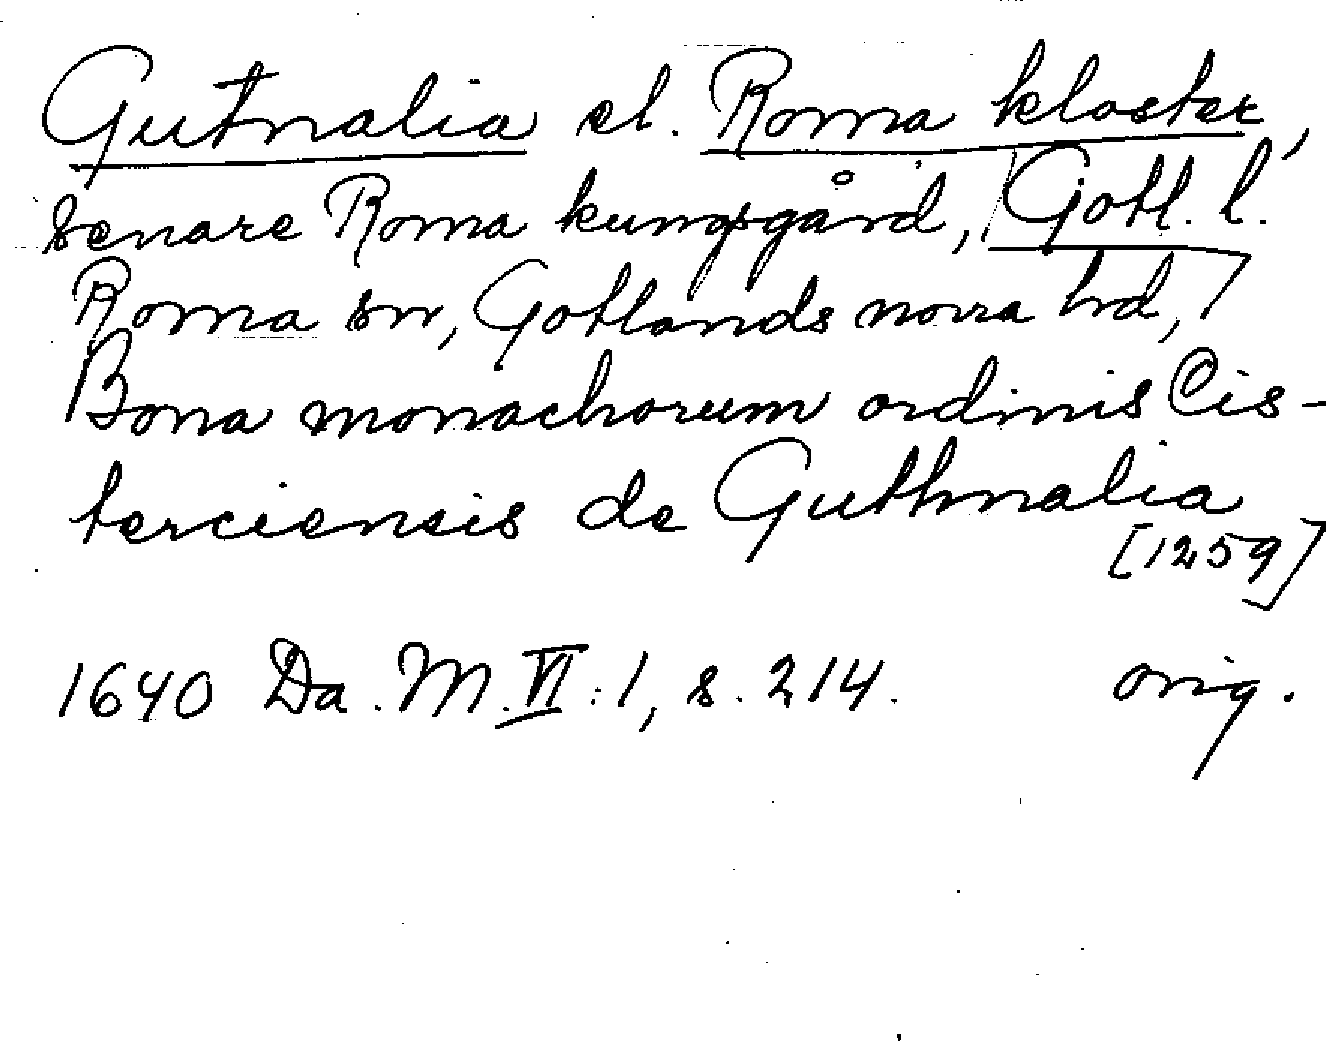 Gutnalia el. Roma kloster,
senare Roma kungsgård, Gotl. l.
Roma sn, Gotlands norra hd,
Bona monachorum ordinis Cis-
terciensis de Guthnalia
[1259]
1640 Da. M. VI:1, s. 214. orig.